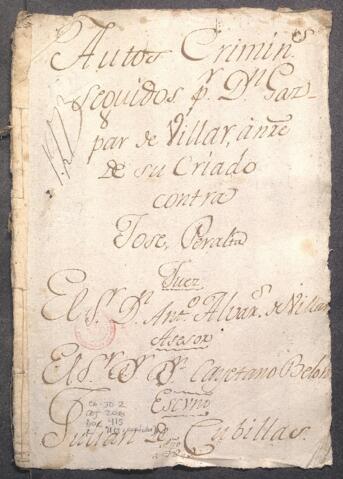 Autos Crimin.es
seguidos pr. Dn. Gas-
par de Villar, amo
de su Criado
contra
Jose, Peralta
Juez
El Sr. Dn. Anto. Alvars. de Villar
Asesor
El Sr. Dr. Dn. Cayetano Belon
Escvno
Julian de Cubillas.